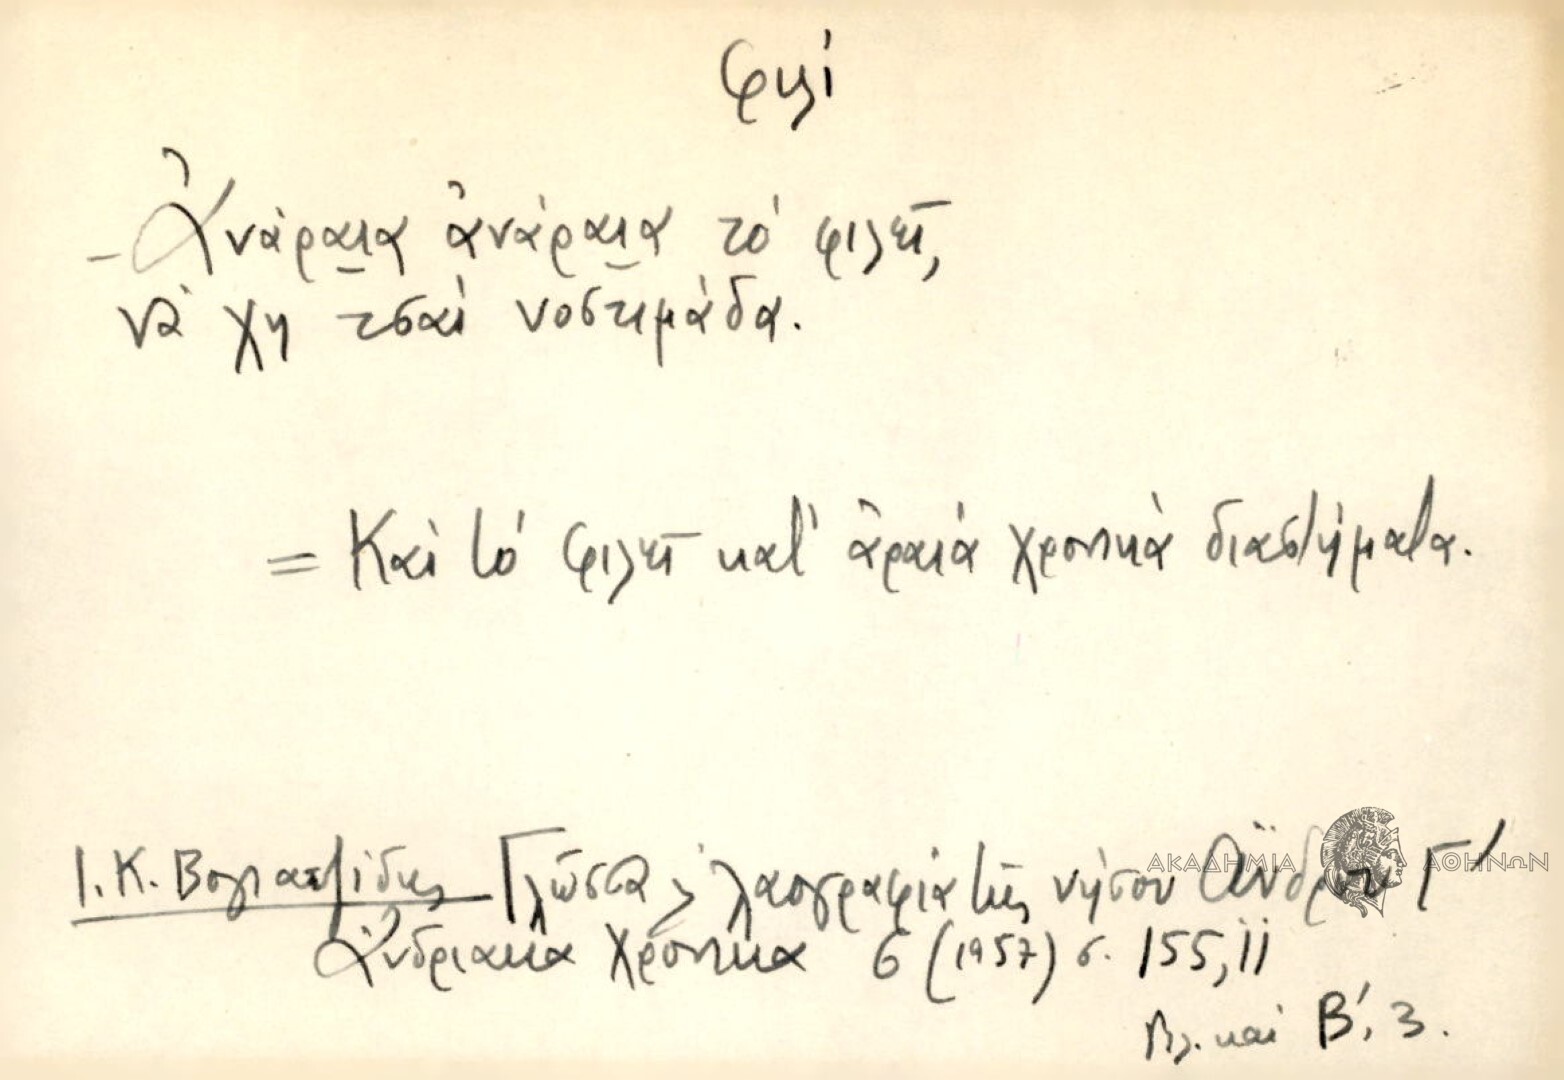 φιλί
- Ἀνάραια ἀνάραια τὸ φιλεῖ,
νὰ χη τσαὶ νοστιμάδα.
= Καὶ τὸ φιλεῖ κατ' ἀραιὰ χρονικὰ διαστήματα.
Ι. Κ. Βογιατζίδης Γλῶσσα λαογραφία τῆς νήσου Ἄνδρου Γ'
Ἀνδριακὰ Χρονικὰ 6 (1957) σ. 155, 11
Βλ. καὶ Β', 3.
ΑΚΑΔΗΜΙΑ ΑΘΗΝΩΝ